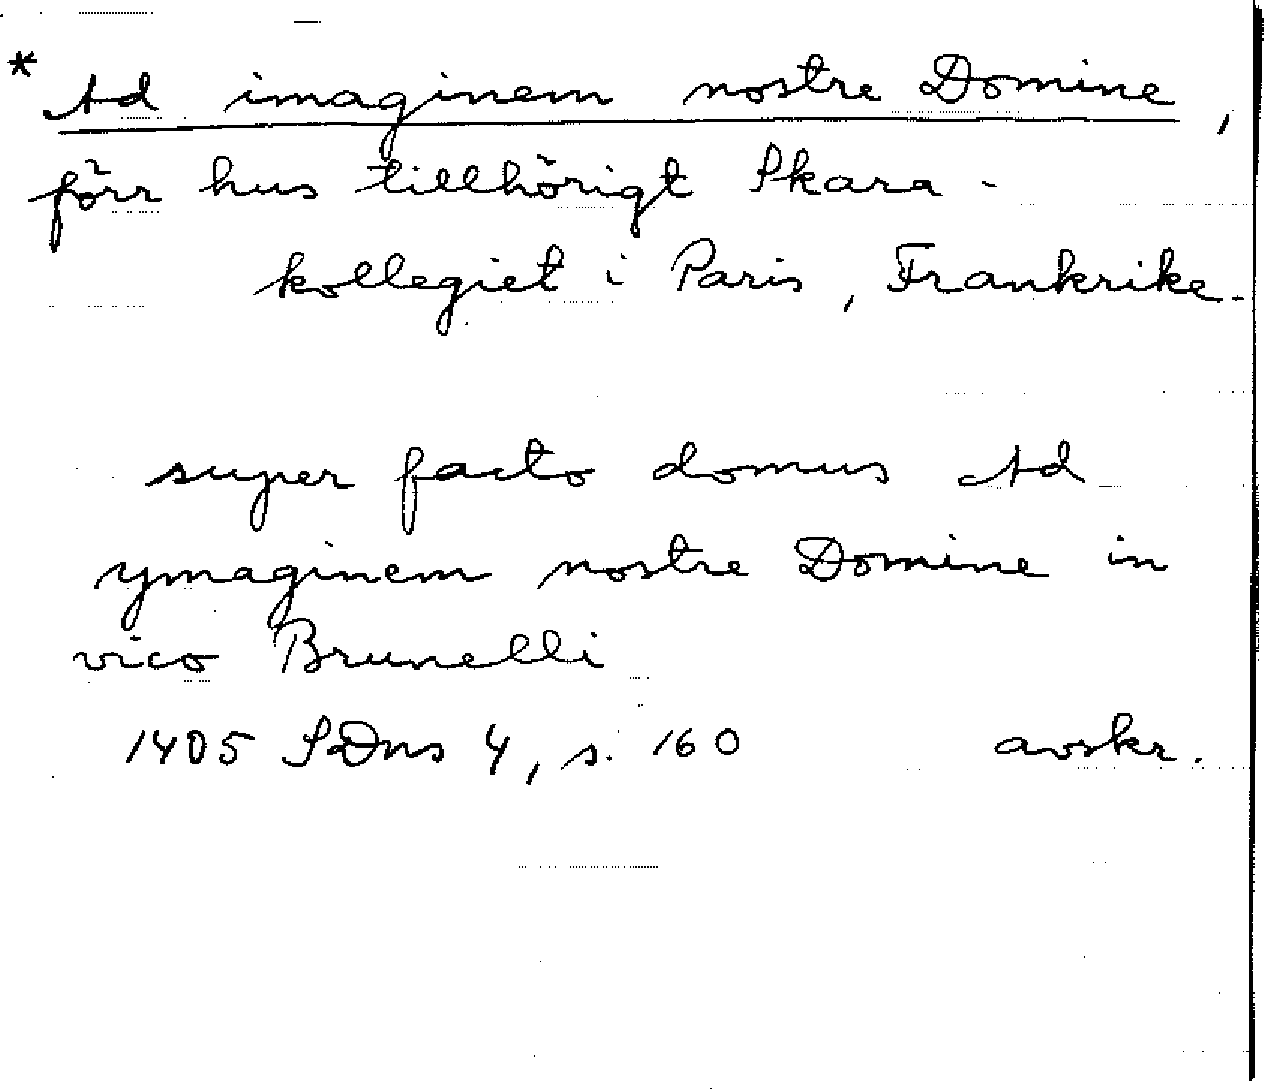 * Ad imaginem nostre Domine,
förr hus tillhörigt Skara-
kollegiet i Paris, Frankrike.
super facto domus Ad
ymaginem nostre Domine in
vico Brunelli
1405 SDns 4, s. 160 avskr.